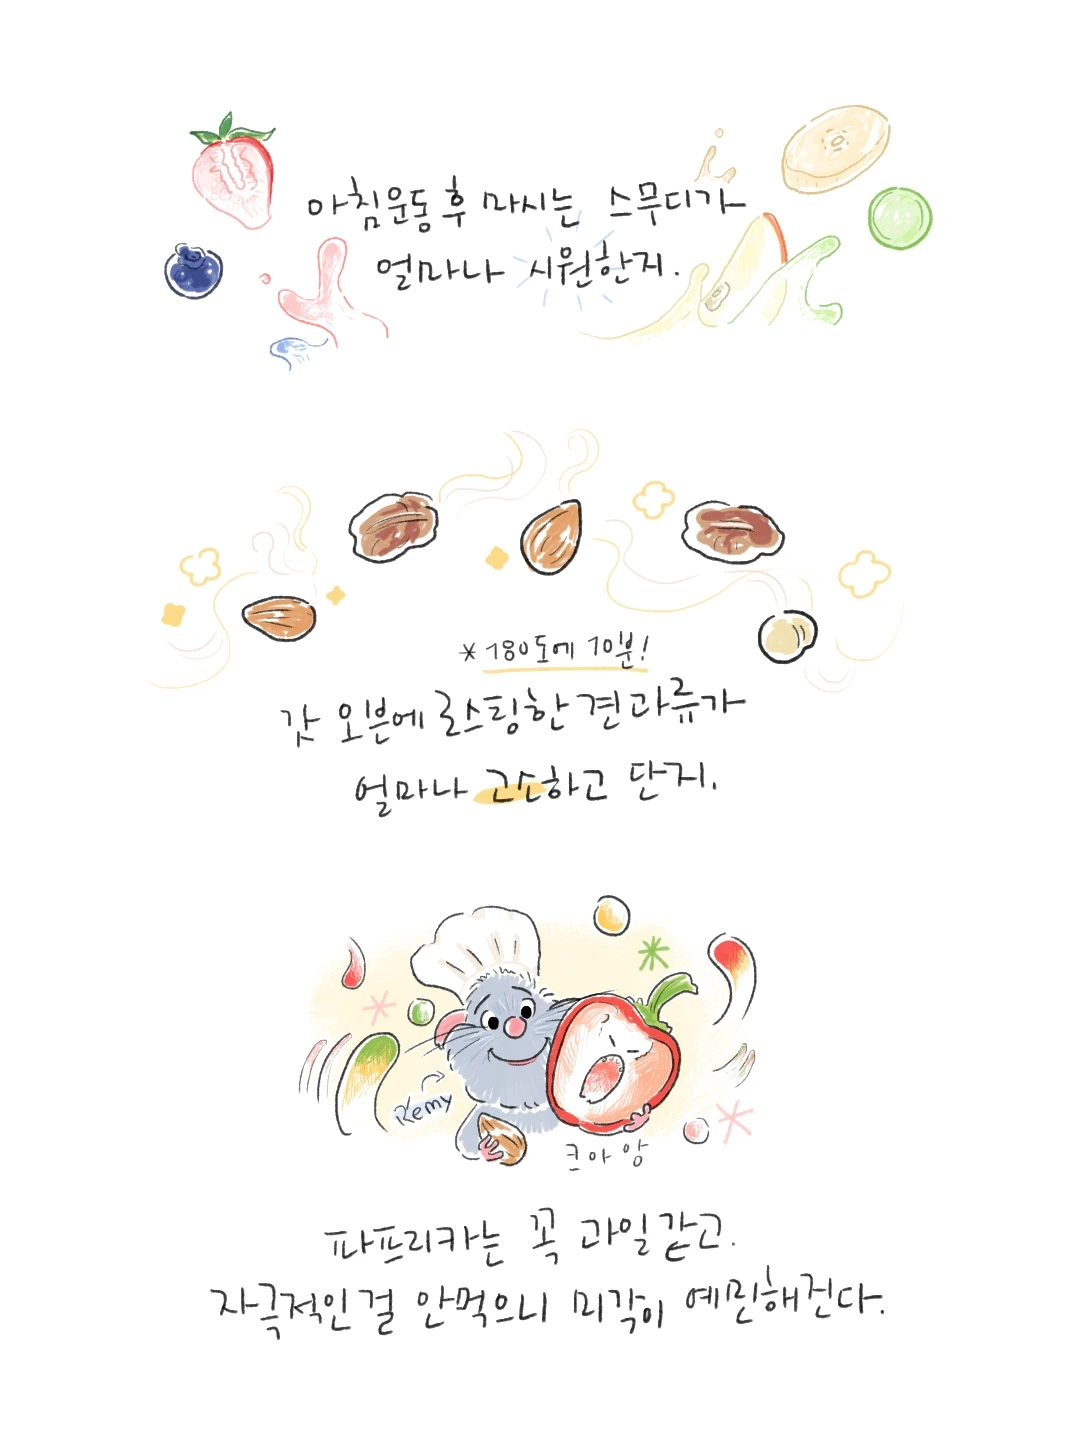 아침운동 후 마시는 스무디가
얼마나 시원한지.
* 180도에 10분!
갓 오븐에 로스팅한 견과류가
얼마나 고소하고 단지.
Remy
크아앙
파프리카는 꼭 과일같고.
자극적인걸 안먹으니 미각이 예민해진다.